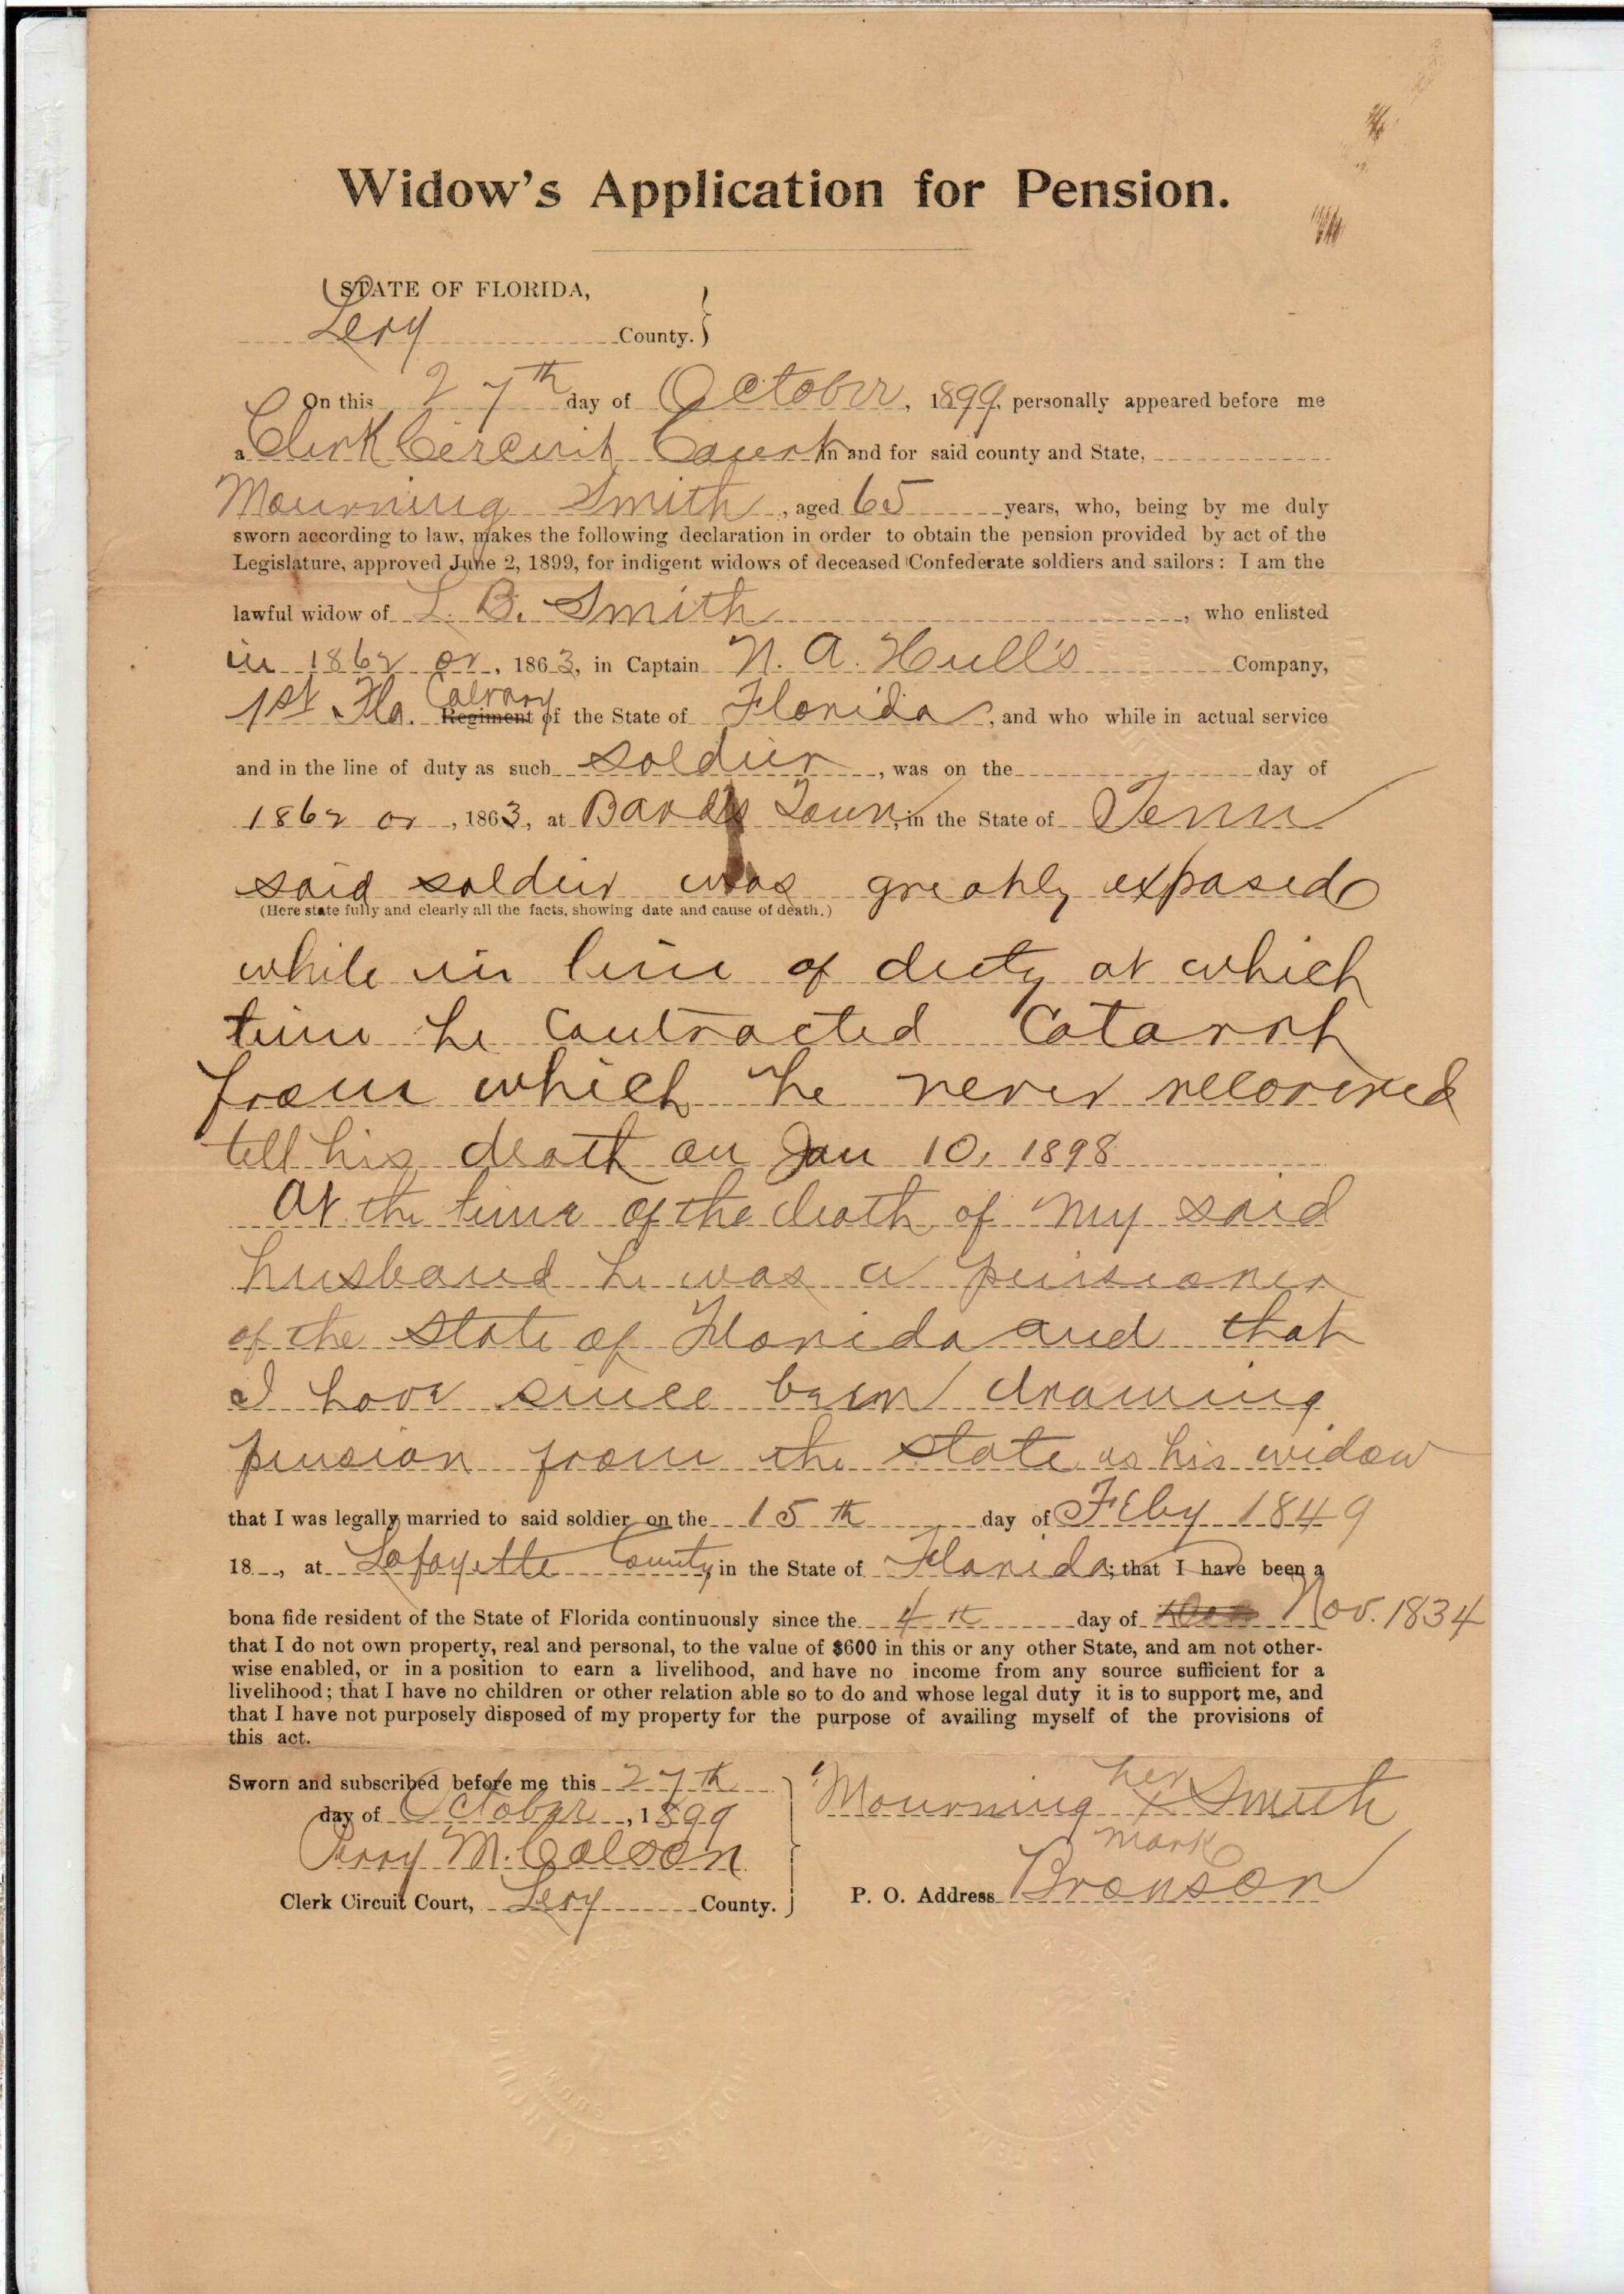 Widow's Application for Pension.
STATE OF FLORIDA,
Levy County.
On this 27th day of October, 1899, personally appeared before me
a Clerk Circuit Court in and for said county and State,
Mourning Smith, aged 65 years, who, being by me duly
sworn according to law, makes the following declaration in order to obtain the pension provided by act of the
Legislature, approved June 2, 1899, for indigent widows of deceased Confederate soldiers and sailors: I am the
lawful widow of L. B. Smith, who enlisted
in 1862 or, 1863, in Captain N. A. Hull's Company,
1st Fla. Calvary Regiment of the State of Florida, and who while in actual service
and in the line of duty as such soldier, was on the day of
1862 or, 1863, at Bards Town, in the State of Tenn
said soldier was greatly exposed
(Here state fully and clearly all the facts, showing date and cause of death.)
while in line of duty at which
time he contracted Catarrh
from which he never recovered
tell his death on Jan 10, 1898
At the time of the death of my said
husband he was a pensioner
of the State of Florida and that
I have since been drawing
pension from the State as his widow
that I was legally married to said soldier on the 15th day of Feby 1849
18 , at Lafayette County, in the State of Florida; that I have been a
bona fide resident of the State of Florida continuously since the 4th day of Nov. 1834
that I do not own property, real and personal, to the value of $600 in this or any other State, and am not other-
wise enabled, or in a position to earn a livelihood, and have no income from any source sufficient for a
livelihood; that I have no children or other relation able so to do and whose legal duty it is to support me, and
that I have not purposely disposed of my property for the purpose of availing myself of the provisions of
this act.
Sworn and subscribed before me this 27th
day of October, 1899
Perry M. Colson
Clerk Circuit Court, Levy County.
her
Mourning X Smith
mark
P. O. Address Bronson